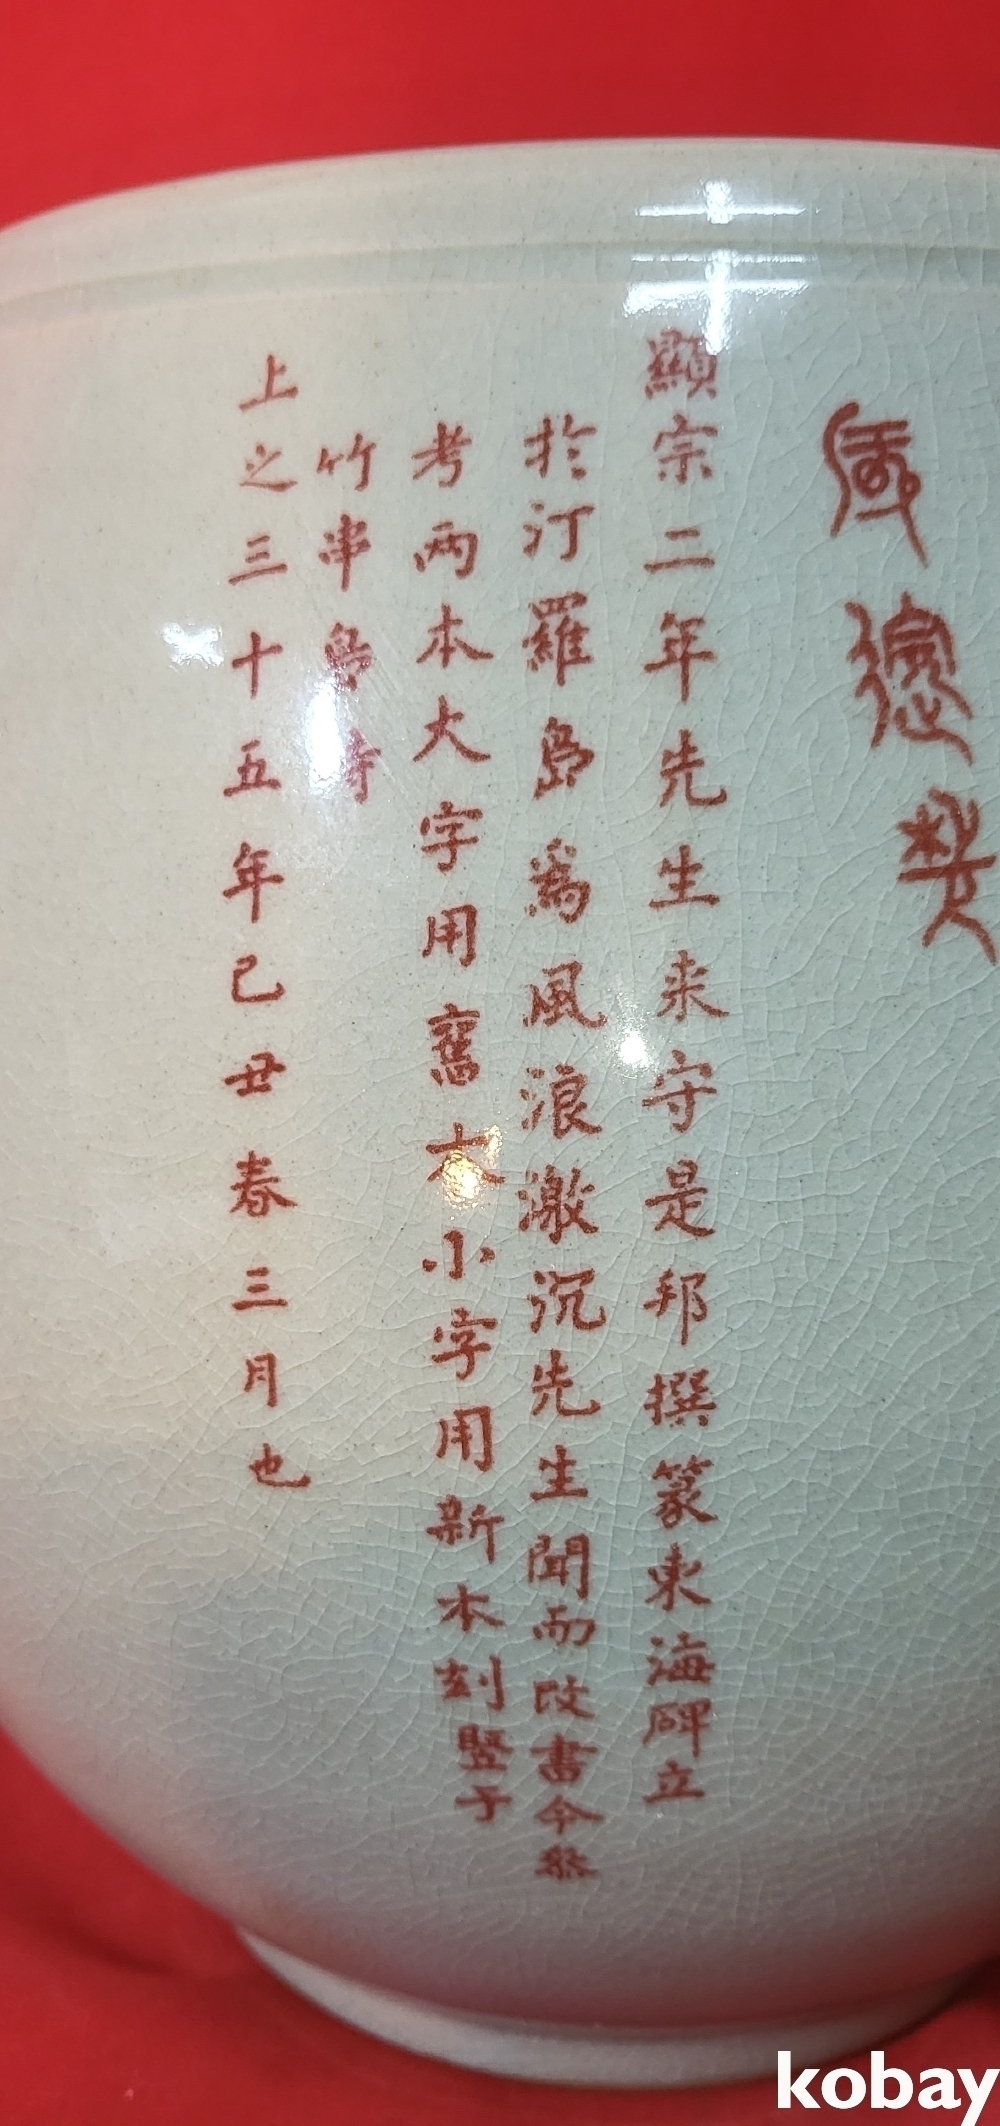 顯宗二年先生来守是邦撰篆東海碑立
於汀羅島爲風浪激沉先生聞而改書今叅
考兩本大字用舊本小字用新本刻竪于
竹串島時
上之三十五年己丑春三月也
kobay